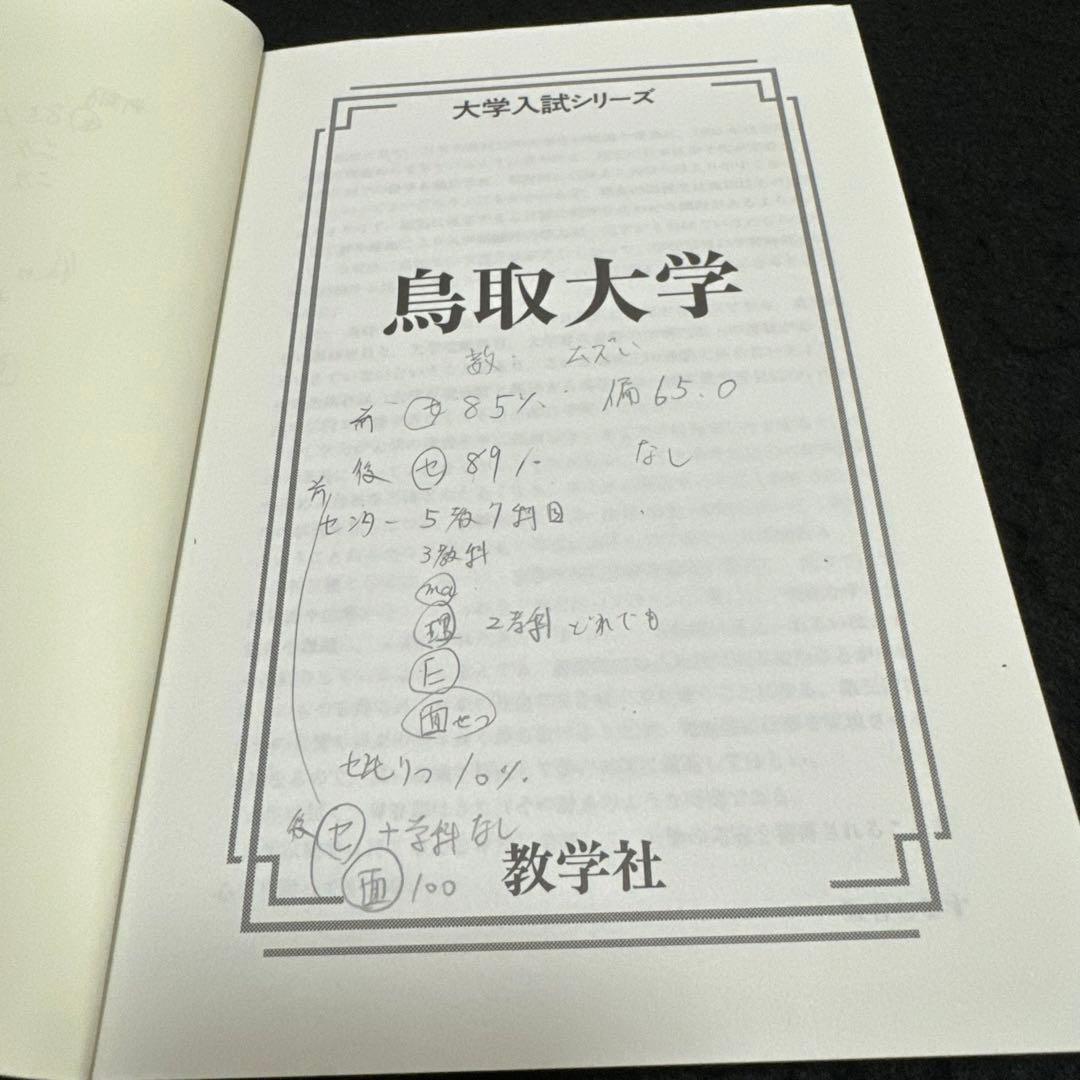 大学入試シリーズ
鳥取大学
数: ムズい
前 セ 85% 偏65.0
後 セ 89% なし
前
センター 5教7科目
3教科
ma
理 2教科 どれでも
E
面せつ
後 セ + 学科なし
面 100
教学社